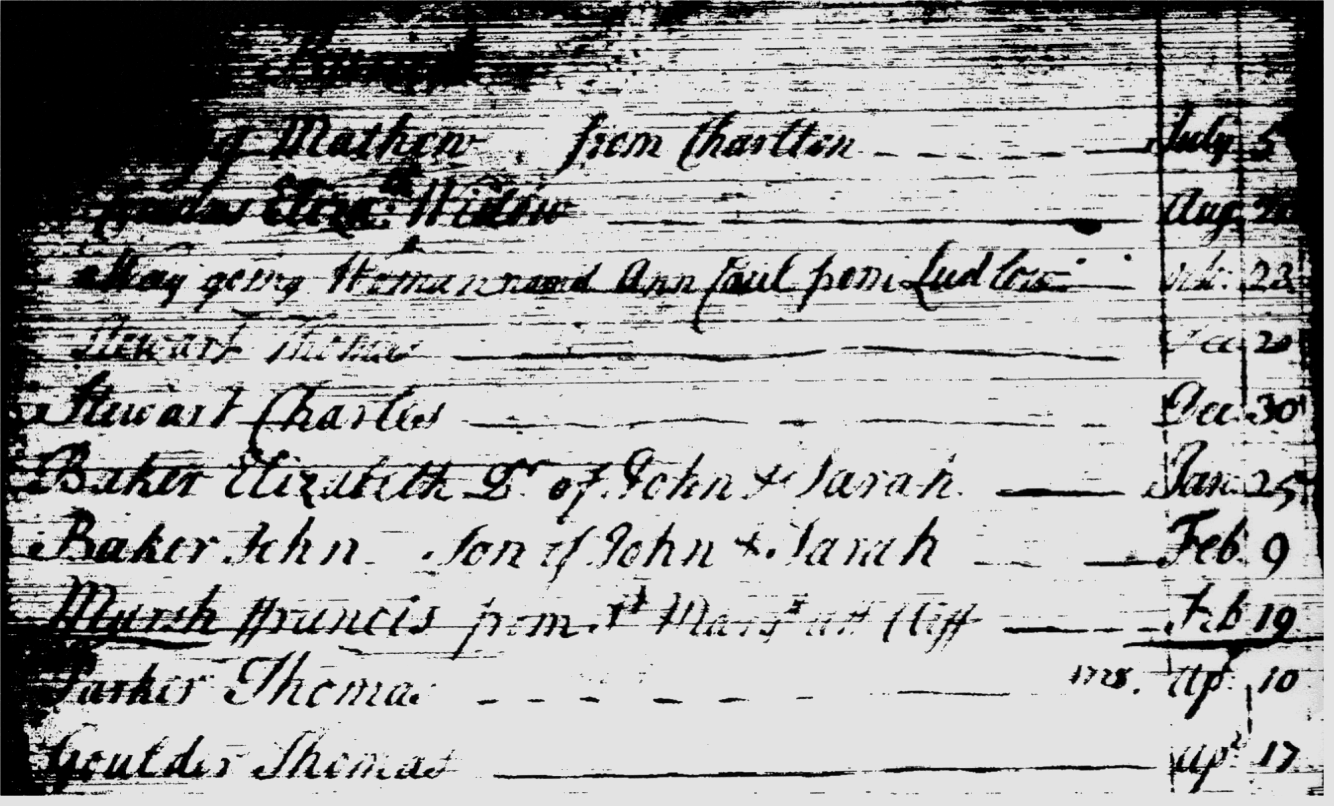 Mathew from Charlton July 5
Eliza: Widow Aug
going Woman named Ann Paul from Ludlow 22
Stewart Thomas Dec 20
Stewart Charles Dec 30
Baker Elizabeth Dr of John & Sarah Jan 25
Baker John Son of John & Sarah Feb. 9
Marsh ffrancis from St Cliff Feb 19
Parker Thomas 1728. Ap 10
Goulder Thomas Ap 17